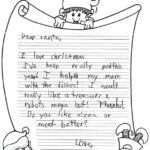 Dear Santa,
I love christmas
I've been really good this
year! I help my mum
with the dishes! I would
really like a treasure x
robots mega bot! Thanks!
Do you like pizza or
more better?
Love,